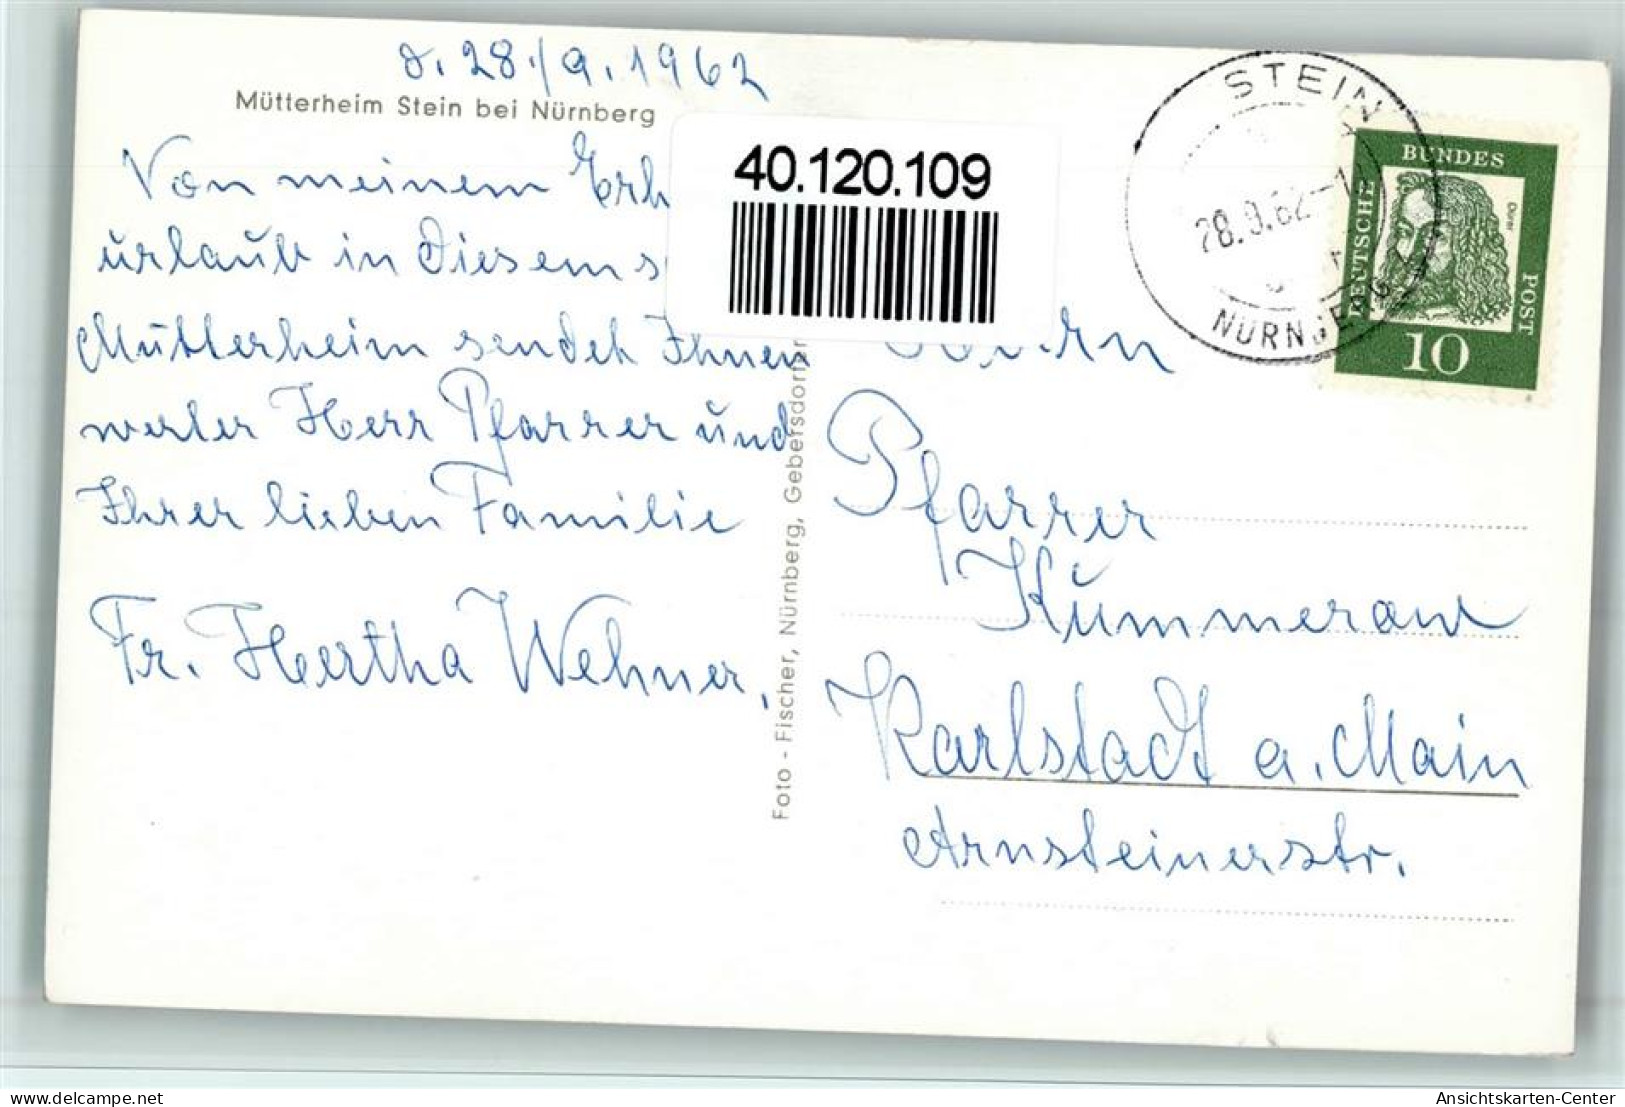 d. 28./9. 1962
Mütterheim Stein bei Nürnberg
Von meinem Erh
urlaub in diesem s
Mütterheim sendet Ihnen
werter Herr Pfarrer und
Ihrer lieben Familie
Fr. Hertha Wehner,
40.120.109
Foto - Fischer, Nürnberg, Gebersdorfer
STEIN
28.9.62-1
NÜRNBERG
DEUTSCHE
BUNDES
POST
Dürer
10
Pfarrer
Kummerow
Karlstadt a. Main
Arnsteinerstr.
www.delcampe.net
Ansichtskarten-Center